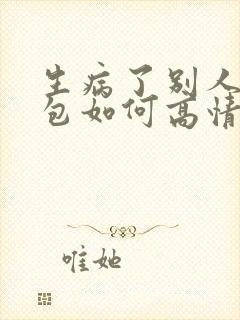 生病了别人
包如何高情
唯她